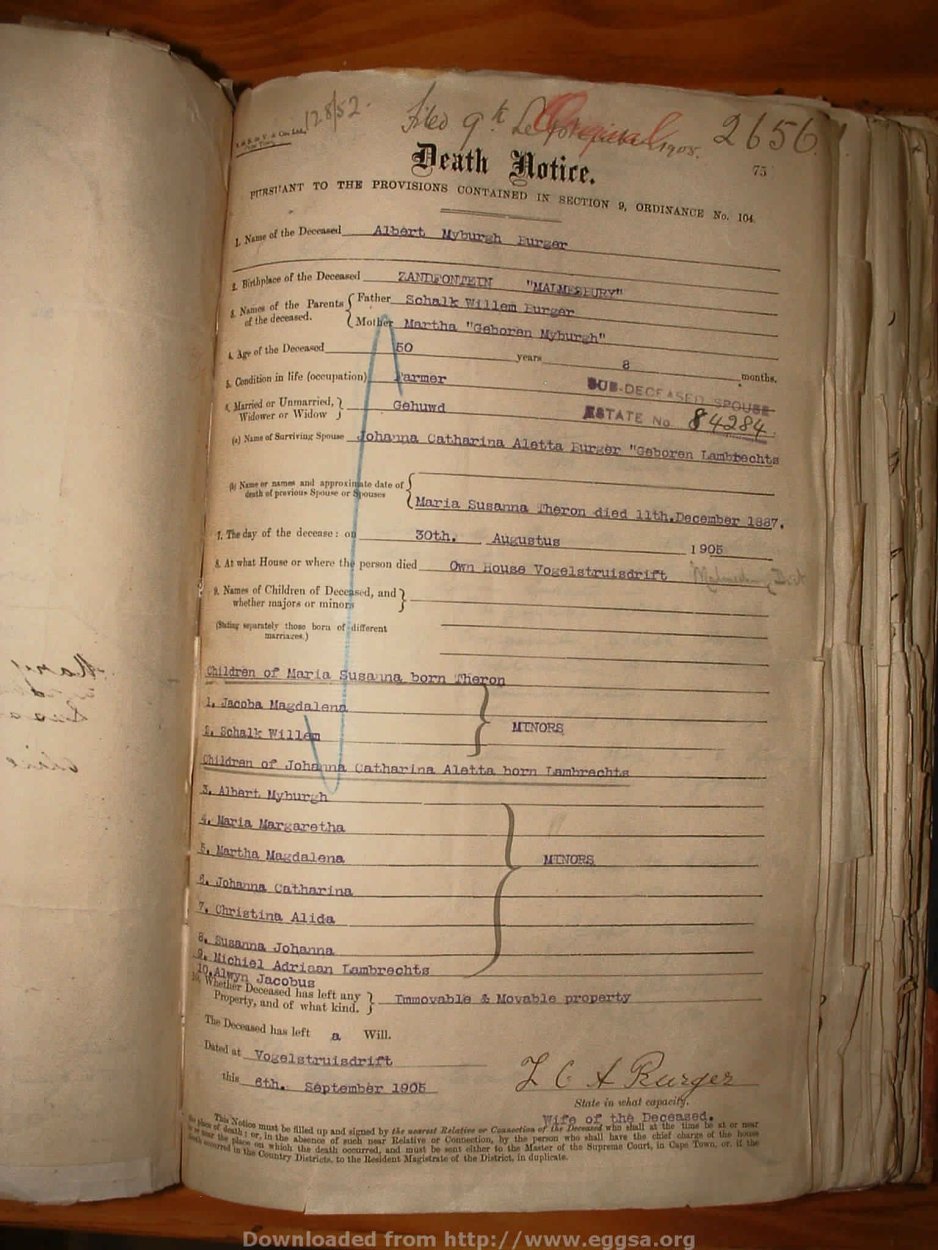 128/52.
Filed 9th
Original
1905.
2656
75
Death Notice.
PURSUANT TO THE PROVISIONS CONTAINED IN SECTION 9, ORDINANCE No. 104.
1. Name of the Deceased Albert Myburgh Burger
2. Birthplace of the Deceased ZANDFONTEIN "MALMESBURY"
3. Names of the Parents of the deceased. { Father Schalk Willem Burger
Mother Martha "Geboren Myburgh"
4. Age of the Deceased 50 years 8 months.
5. Condition in life (occupation) Farmer
SUB-DECEASED SPOUSE
6. Married or Unmarried, Widower or Widow } Gehuwd
ESTATE No. 84284
(a) Name of Surviving Spouse Johanna Catharina Aletta Burger "Geboren Lambrechts
(b) Name or names and approximate date of death of previous Spouse or Spouses { Maria Susanna Theron died 11th. December 1887.
7. The day of the decease: on 30th. Augustus 1905
8. At what House or where the person died Own House Vogelstruisdrift
9. Names of Children of Deceased, and whether majors or minors }
(Stating separately those born of different marriages.)
Children of Maria Susanna born Theron
1. Jacoba Magdalena
MINORS
2. Schalk Willem
Children of Johanna Catharina Aletta born Lambrechts
3. Albert Myburgh
4. Maria Margaretha
5. Martha Magdalena
MINORS
6. Johanna Catharina
7. Christina Alida
8. Susanna Johanna
9. Michiel Adriaan Lambrechts
10. Alwyn Jacobus
10. Whether Deceased has left any Property, and of what kind. } Immovable & Movable property
The Deceased has left a Will.
Dated at Vogelstruisdrift
this 6th. September 1905
J C A Burger
State in what capacity.
Wife of the Deceased.
This Notice must be filled up and signed by the nearest Relative or Connection of the Deceased who shall at the time be at or near
the place of death; or, in the absence of such near Relative or Connection, by the person who shall have the chief charge of the house
or near the place on which the death occurred, and must be sent either to the Master of the Supreme Court, in Cape Town, or, if the
death occurred in the Country Districts, to the Resident Magistrate of the District, in duplicate.
Downloaded from http://www.eggsa.org